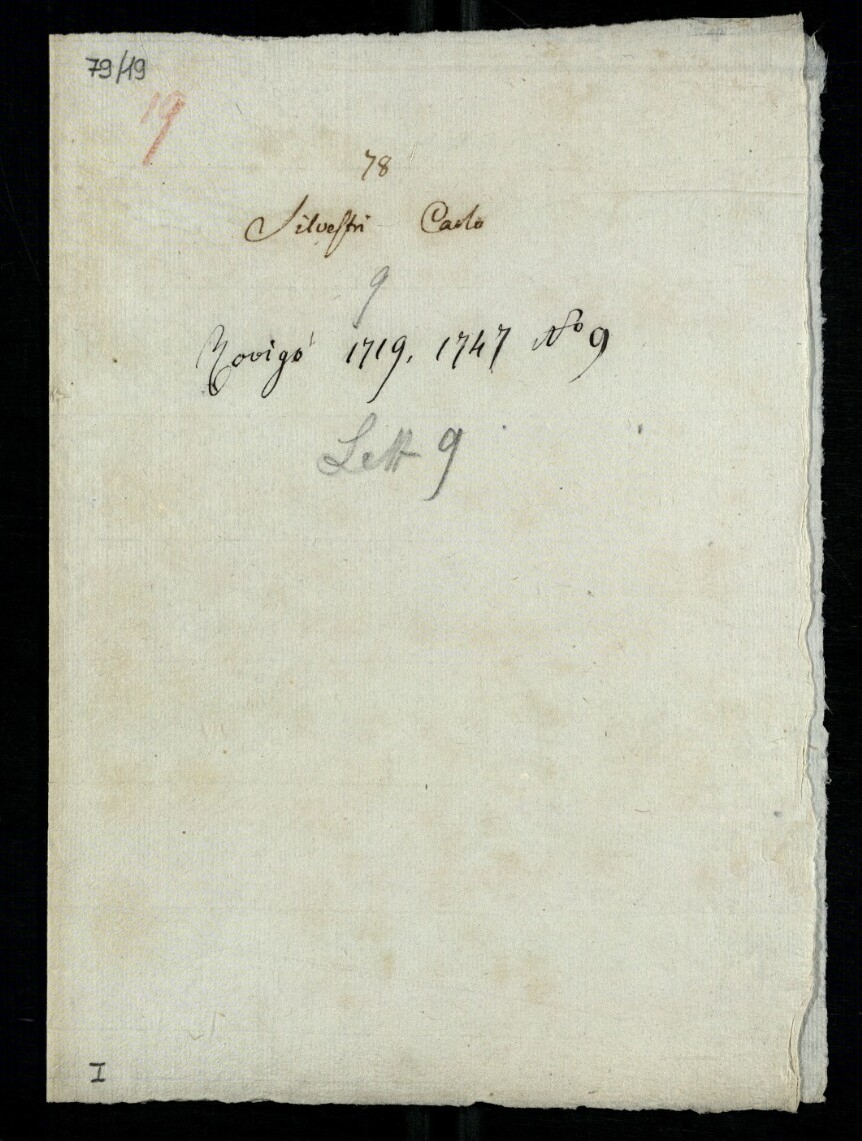 79/19
19
78
Silvestri Carlo
9
Rovigo 1719. 1747 No 9
Lett 9
I